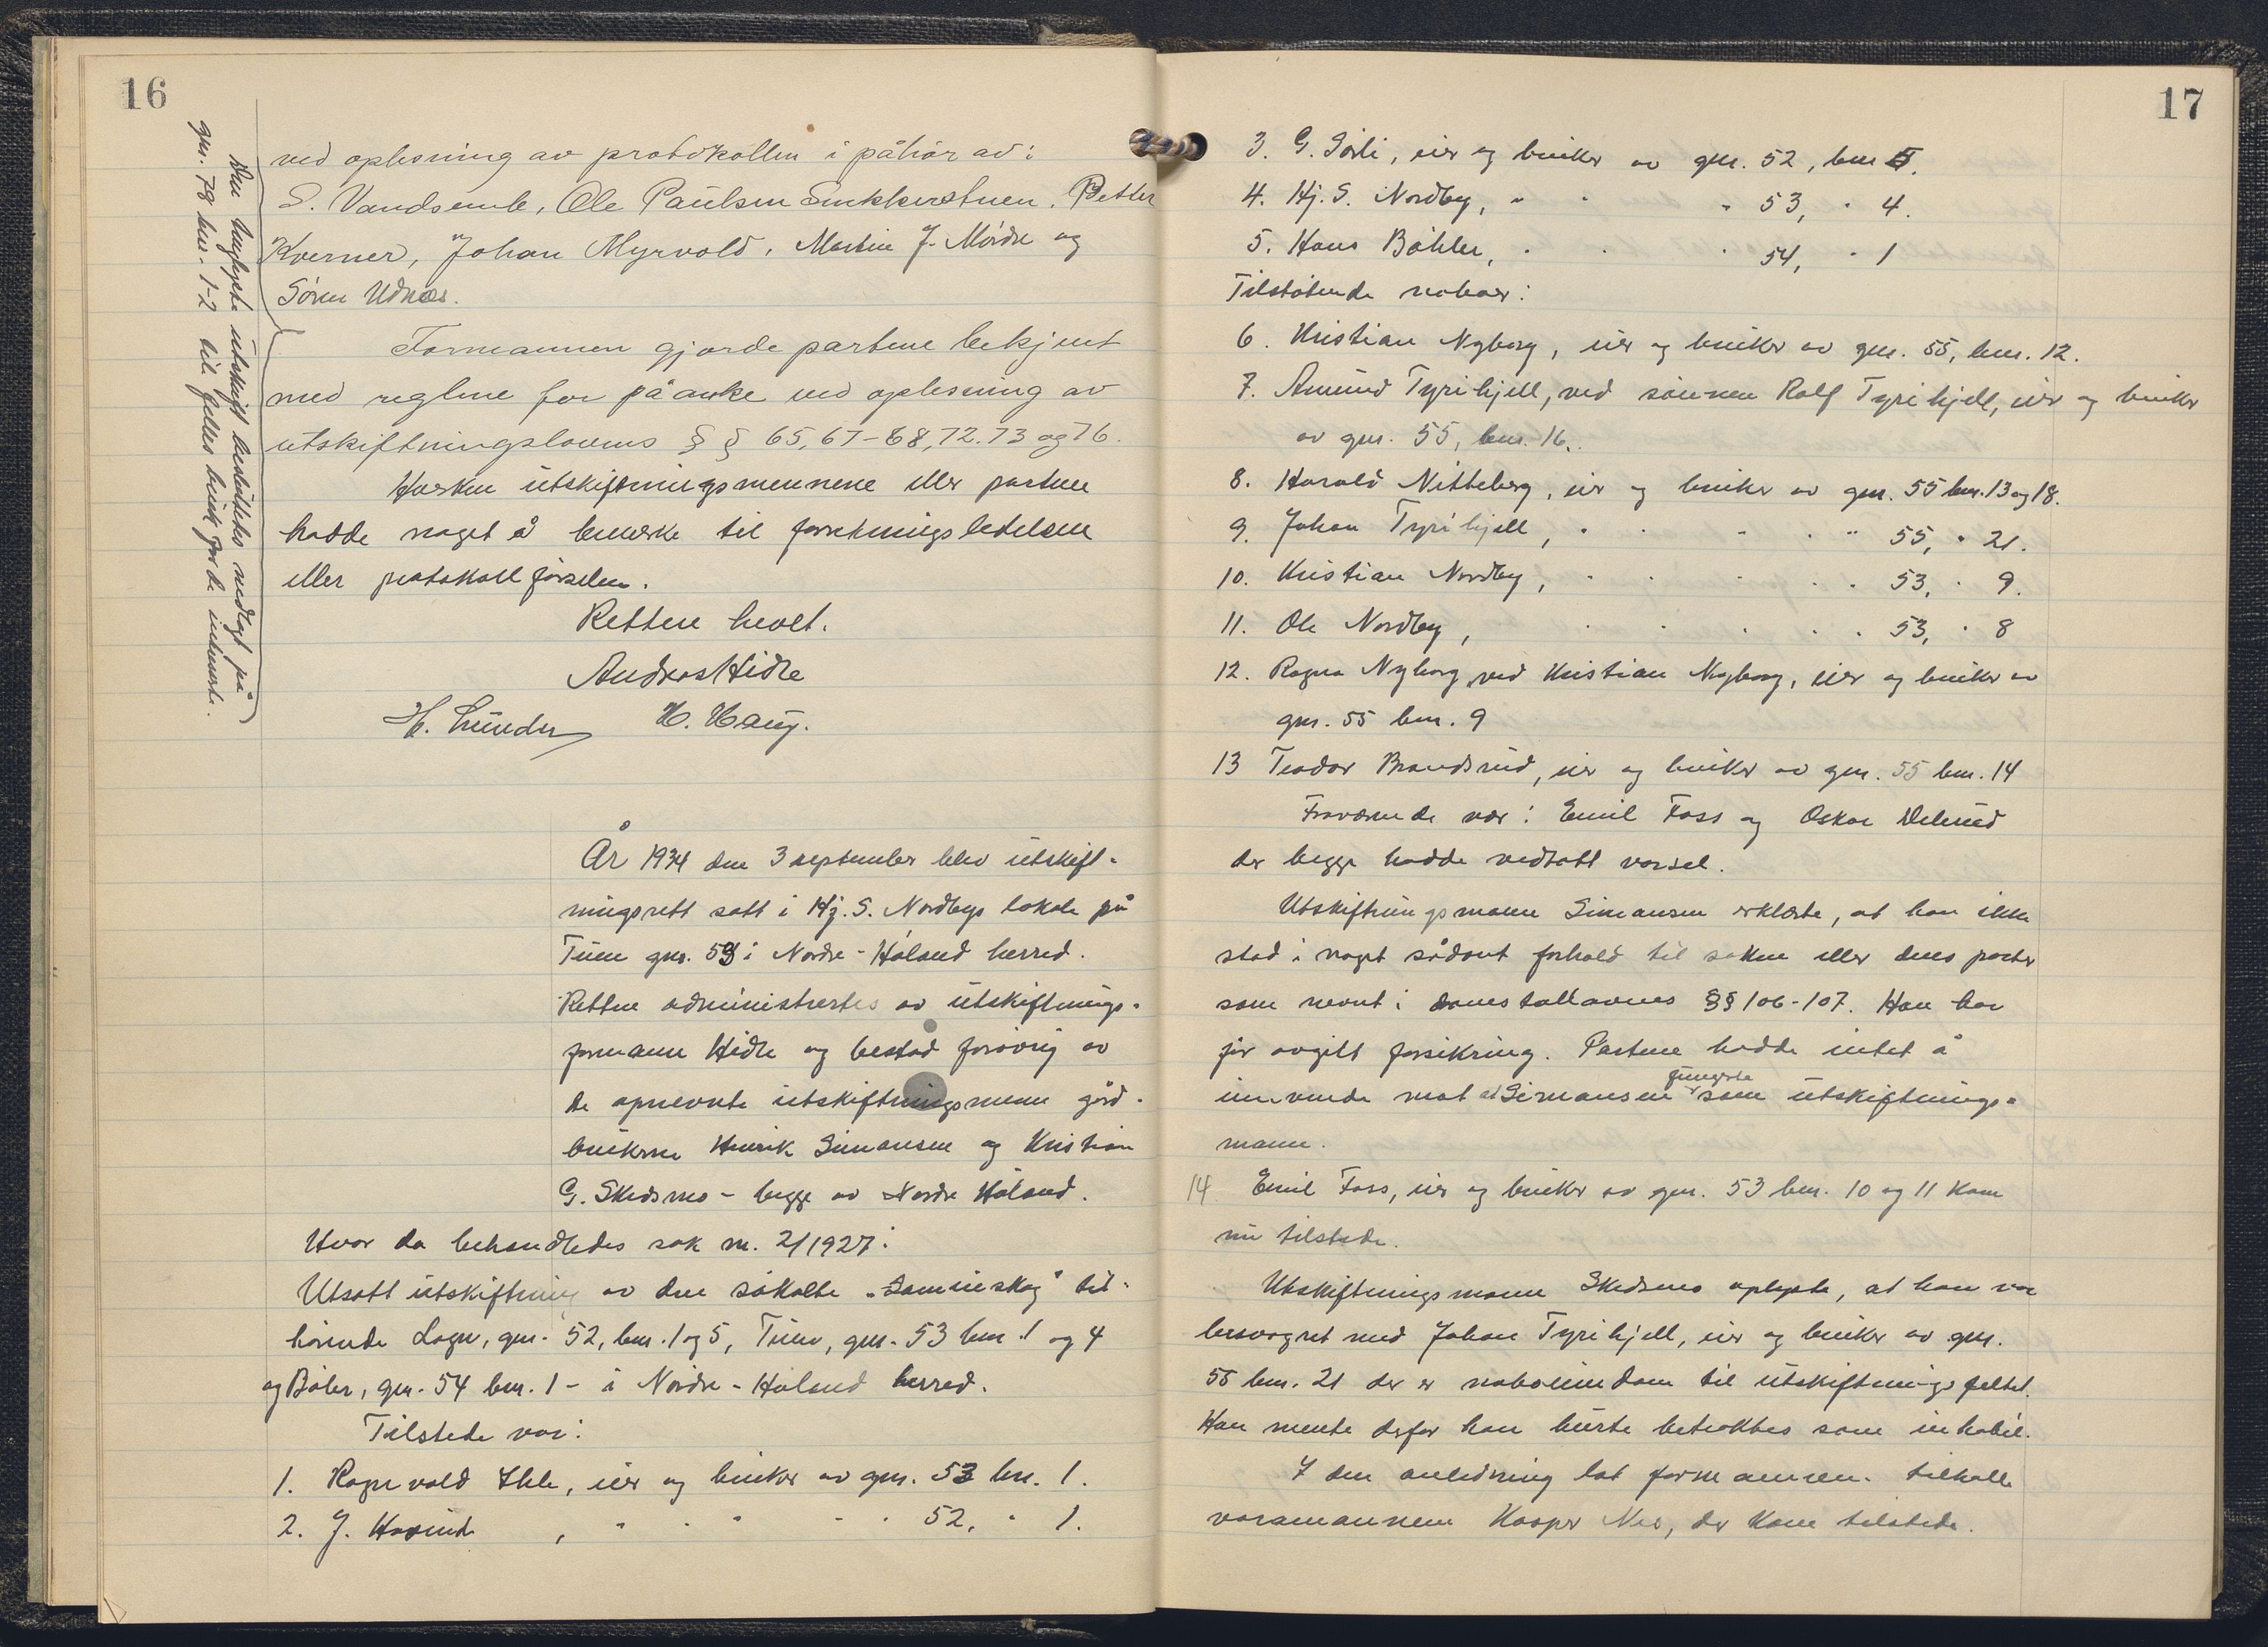 16
Den tinglyste utskift besluttedes nedlagt på
gnr. 78 bnr. 1-2 til felles bruk for de interesserte.
ved oplesning av protokollen i påhör av:
S. Vandsemb, Ole Paulsen Petter
Kverner, Johan Myrvold, Martin J. Mördre og
Sören Udnæs.
Formannen gjorde partene bekjent
med reglene for påanke ved oplesning av
utskiftningslovens §§ 65, 67-68, 72. 73 og 76.
Hverken utskiftningsmennene eller partene
hadde noget å bemerke til forretningsledelsen
eller protokollförselen.
Retten hevet.
Andreas Hidle
H. Lunder H. Haug.
År 1934 den 3 september blev utskift-
ningsrett satt i Hj. S. Nordbys lokale på
Tuen gnr. 53 i Nordre-Höland herred.
Retten administrertes av utskiftnings-
formann Hidle og bestod forövrig av
de opnevnte utskiftningsmenn gård-
brukerne Henrik Simonsen og Kristian
G. Skedsmo - begge av Nordre Höland.
Hvor da behandledes sak nr. 2/1927:
Utsatt utskiftning av den såkalte "Sameieskog" til-
hörende Logn, gnr. 52, bnr. 1 og 5, Tuen, gnr. 53 bnr. 1 og 4
og Böler, gnr. 54 bnr. 1 - i Nordre-Höland herred.
Tilstede var:
1. Ragnvald Ihle, eier og bruker av gnr. 53 bnr. 1.
2. J. Hovind, " " " " " 52, " 1.
17
3. G. Sörli, eier og bruker av gnr. 52, bnr 5.
4. Hj. S. Nordby, " " " 53, " 4.
5. Hans Böhler, " " " 54, " 1
Tilstötende naboer:
6. Kristian Nyborg, eier og bruker av gnr. 55, bnr. 12.
7. Amund Tyrihjell, ved sönnen Rolf Tyrihjell, eier og bruker
av gnr. 55, bnr. 16.
8. Harald Nitteberg, eier og bruker av gnr. 55 bnr. 13 og 18.
9. Johan Tyrihjell, " " " " " 55, " 21.
10. Kristian Nordby, " " " " " 53, " 9.
11. Ole Nordby, " " " " " 53, " 8
12. Ragna Nyborg ved Kristian Nyborg, eier og bruker av
gnr. 55 bnr. 9
13 Teodor Brandsrud, eier og bruker av gnr. 55 bnr. 14
Fraværende var: Emil Foss og Oskar
der begge hadde vedtatt varsel.
Utskiftningsmann Simonsen erklærte, at han ikke
stod i noget sådant forhold til saken eller dens parter
som nevnt i domstollovens §§ 106-107. Han har
för avgitt forsikring. Partene hadde intet å
innvende mot at Simonsen fungerte som utskiftnings-
mann.
14 Emil Foss, eier og bruker av gnr. 53 bnr. 10 og 11 kom
nu tilstede.
Utskiftningsmann Skedsmo oplyste, at han var
besvogret med Johan Tyrihjell, eier og bruker av gnr.
55 bnr. 21 der er naboeiendom til utskiftningsfeltet.
Han mente derfor han burte betraktes som inhabil.
I den anledning lot formannen tilkalle
varamannen Kasper Nes, der kom tilstede.